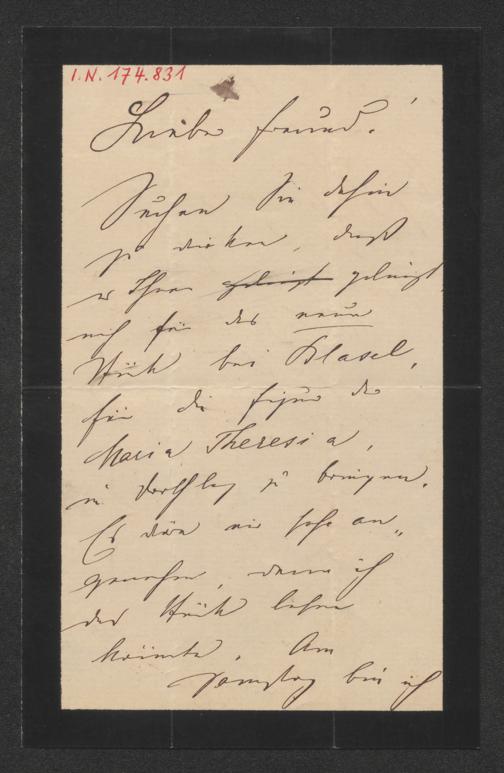 I.N. 174.831
Lieber Freund!
Suchen Sie dahin
zu wirken, daß
es Ihnen gelingt gelingt,
mich für das neue
Stück bei Blasel,
für die Figur der
Maria Theresia,
in Vorschlag zu bringen.
Es wäre mir sehr an„
genehm, wenn ich
das Stück lesen
könnte. Am
Samstag bin ich